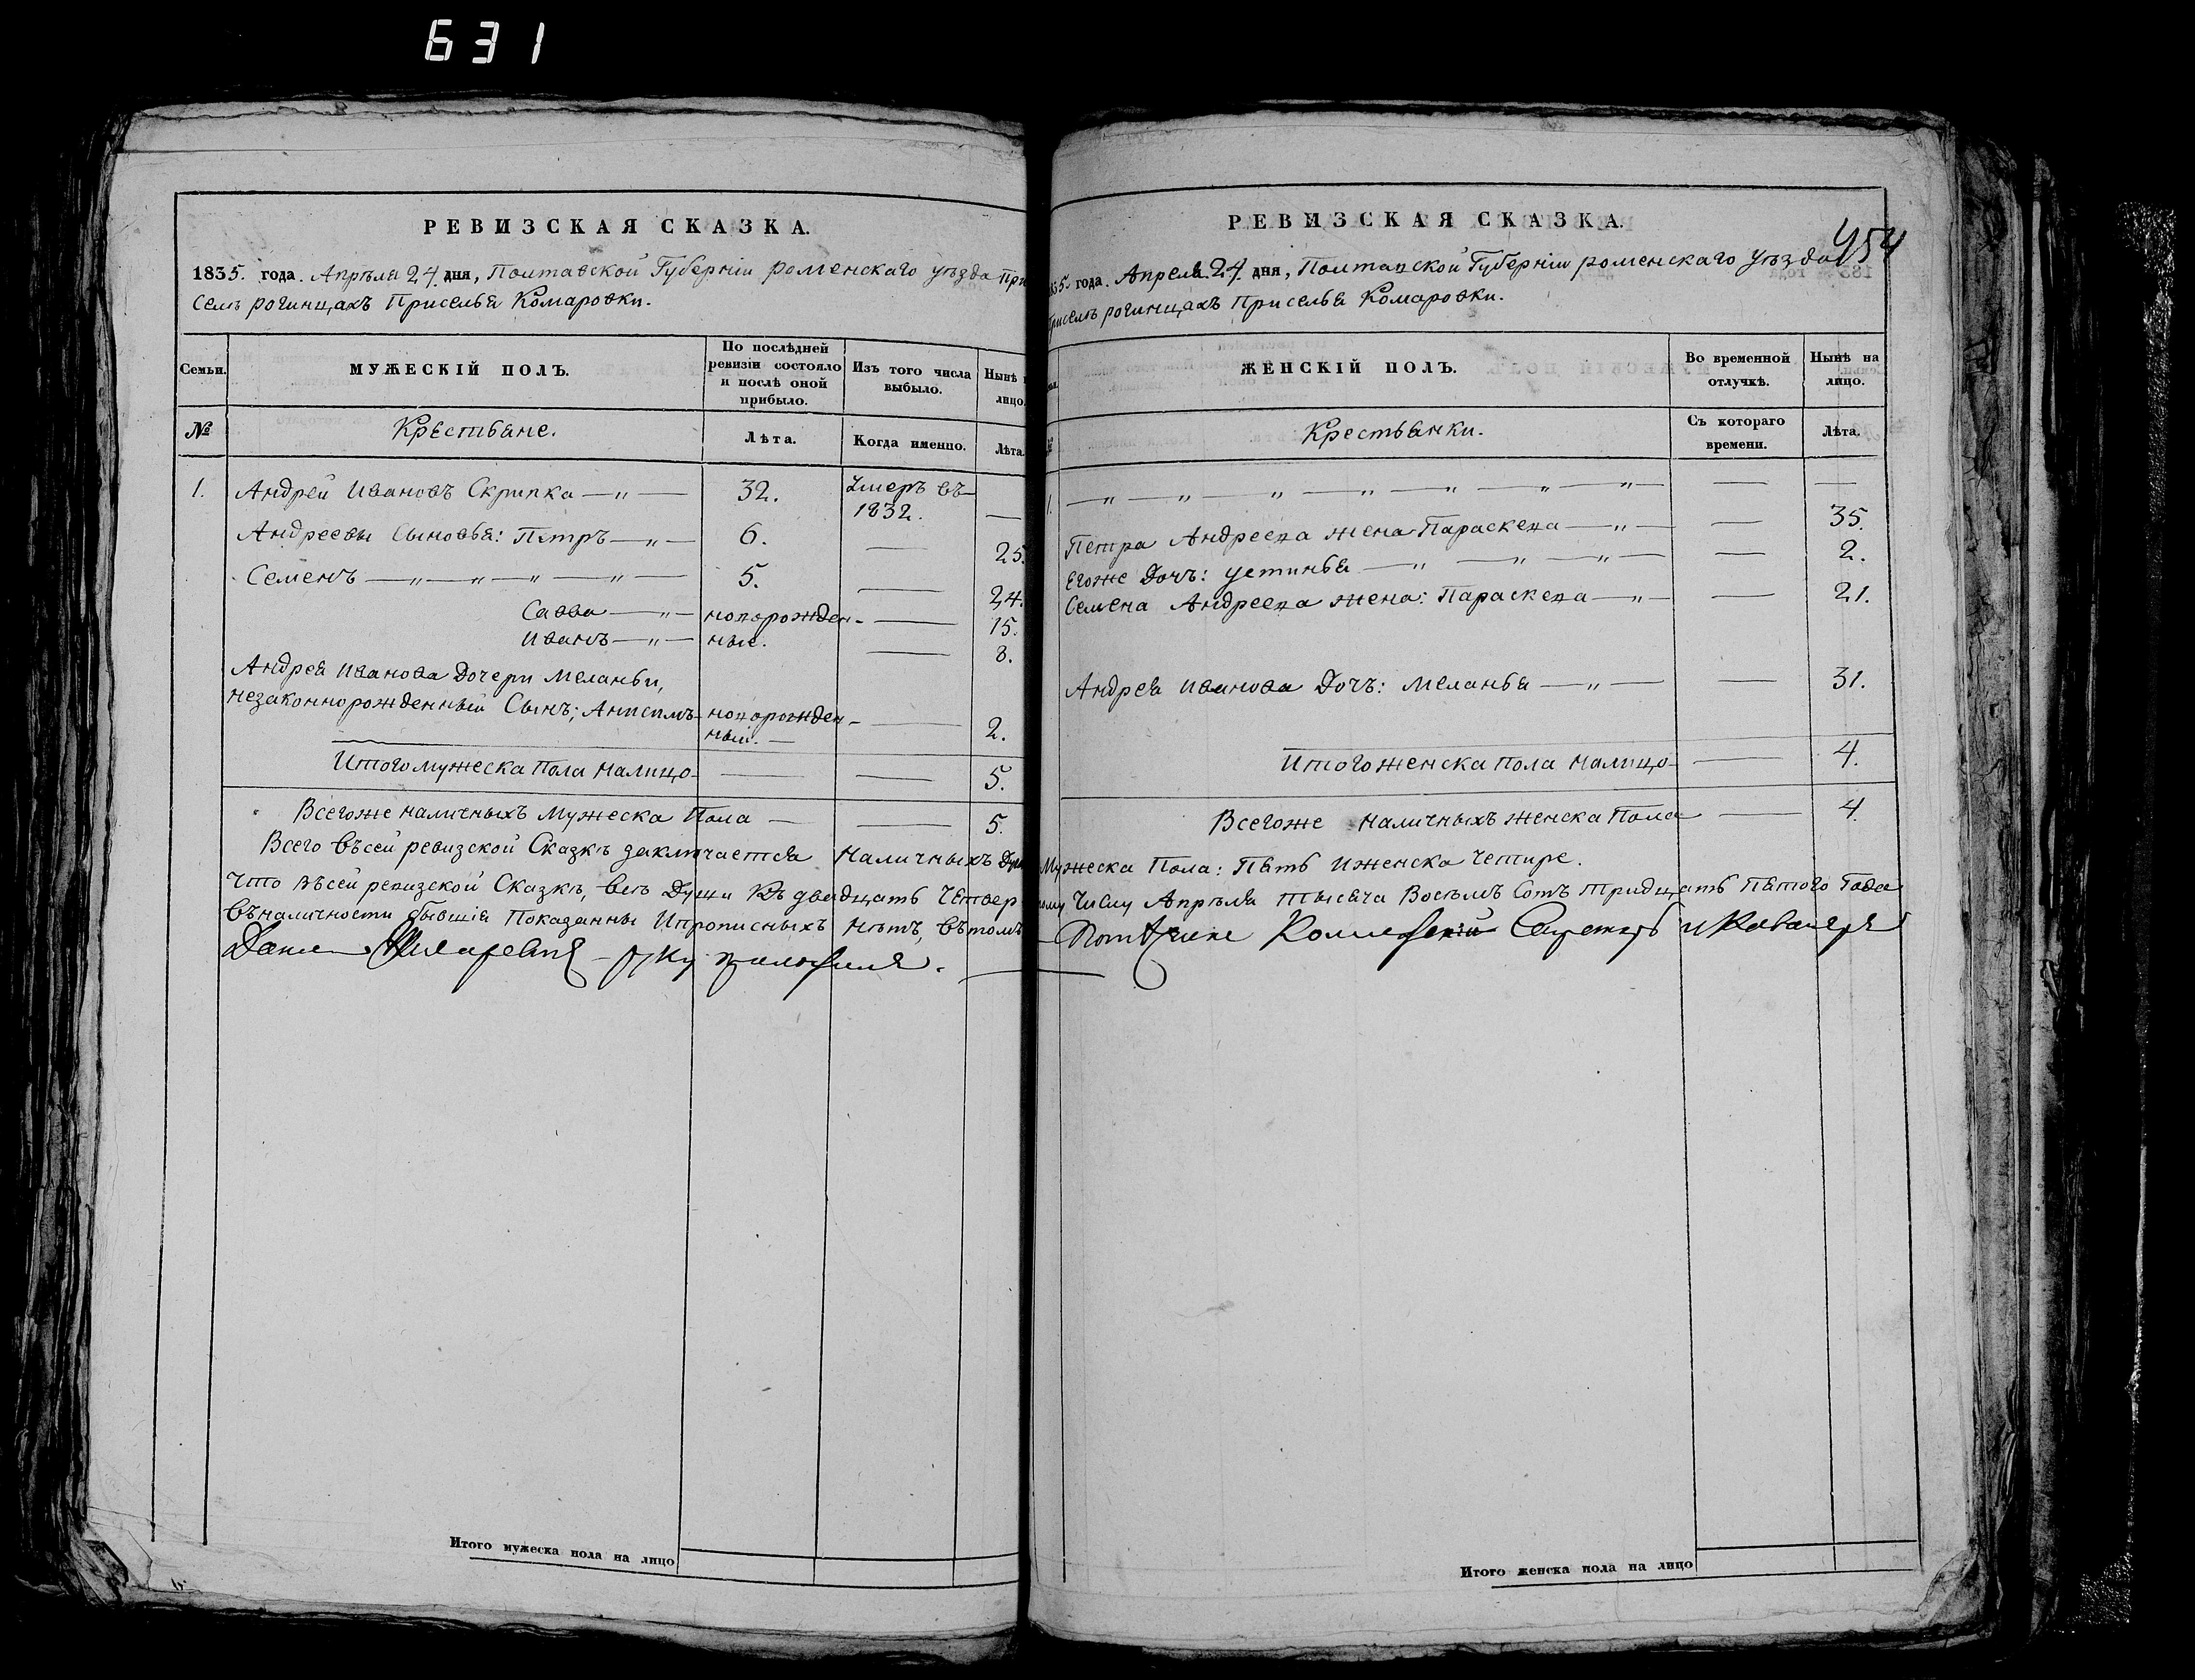 631
РЕВИЗСКАЯ СКАЗКА.
1835. года. Апрѣля 24 дня, Полтавской Губерніи роменскаго уѣзда При
Селѣ рогинцахъ Приселья Комаровки.
Семьи.
МУЖЕСКІЙ ПОЛЪ.
По послѣдней ревизіи состояло и послѣ оной прибыло.
Изъ того числа выбыло.
Нынѣ
лицо.
№
Крестьяне.
Лѣта.
Когда именно.
Лѣта.
1. Андрей Ивановъ Скрипка —„— 32. Умеръ въ 1832. —
Андреевы Сыновья: Петръ —„— 6. — 25.
Семенъ —„—„—„—„— 5. — 24.
Савва —„— новорожден- — 15.
Иванъ —„— ные. — 8.
Андрея Иванова Дочери Меланьи,
незаконнорожденный Сынъ; Анисимъ новорожден- — 2.
ный. —
Итого мужеска Пола налицо — — 5.
Всегоже наличныхъ Мужеска Пола — — 5.
Всего Въсей ревизской Сказкѣ заключается Наличныхъ Душ
Что въсей ревизской Сказкѣ, всѣ Души Къ двадцать Четвер
Въналичности бывшія Показанны Ипрописныхъ нѣтъ, вътомъ
руку приложилъ.
Итого мужеска пола на лицо
РЕВИЗСКАЯ СКАЗКА.
454
35. года. Апреля 24 дня, Полтавской Губерніи роменскаго Уѣзда
Приселѣ рогинцахъ Приселья Комаровки.
ЖЕНСКІЙ ПОЛЪ.
Во временной отлучкѣ.
Нынѣ на лицо.
Крестьянки.
Съ котораго времени.
Лѣта.
1. —„—„—„—„—„—„—„— — —
Петра Андреева жена Параскева —„— — 35.
Егоже Дочъ: устинья —„—„—„— — 2.
Семена Андреева жена: Параскева —„— — 21.
Андрея Иванова Дочъ: Меланья —„— — 31.
Итого женска пола налицо — 4.
Всегоже наличныхъ женска Пола — 4.
Мужеска Пола: Пять Иженска Четире.
тому Числу Апрѣля тысяча Восѣмъ Сотъ тридцать Пятого Года
Секретарь и Кавалеръ
Итого женска пола на лицо